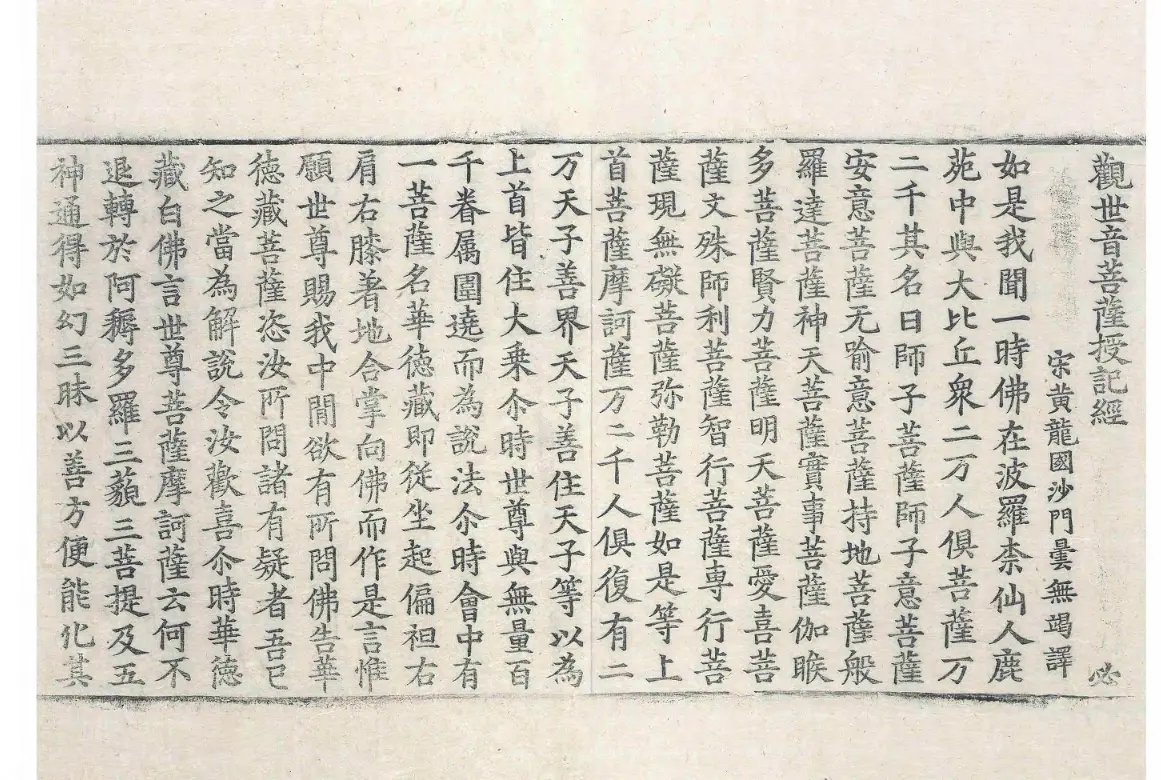 觀世音菩薩授記經
宋黃龍國沙門曇無竭譯
必
如是我聞一時佛在波羅柰仙人鹿
苑中與大比丘衆二万人俱菩薩万
二千其名曰師子菩薩師子意菩薩
安意菩薩无喻意菩薩持地菩薩般
羅達菩薩神天菩薩實事菩薩伽睺
多菩薩賢力菩薩明天菩薩愛喜菩
薩文殊師利菩薩智行菩薩專行菩
薩現無礙菩薩弥勒菩薩如是等上
首菩薩摩訶薩万二千人俱復有二
万天子善界天子善住天子等以為
上首皆住大乗尒時世尊與無量百
千眷属圍遶而為說法尒時會中有
一菩薩名華德藏即從坐起偏袒右
肩右膝著地合掌向佛而作是言惟
願世尊賜我中閒欲有所問佛告華
德藏菩薩恣汝所問諸有疑者吾已
知之當為解說令汝歡喜尒時華德
藏白佛言世尊菩薩摩訶薩云何不
退轉於阿耨多羅三藐三菩提及五
神通得如幻三昧以善方便能化其